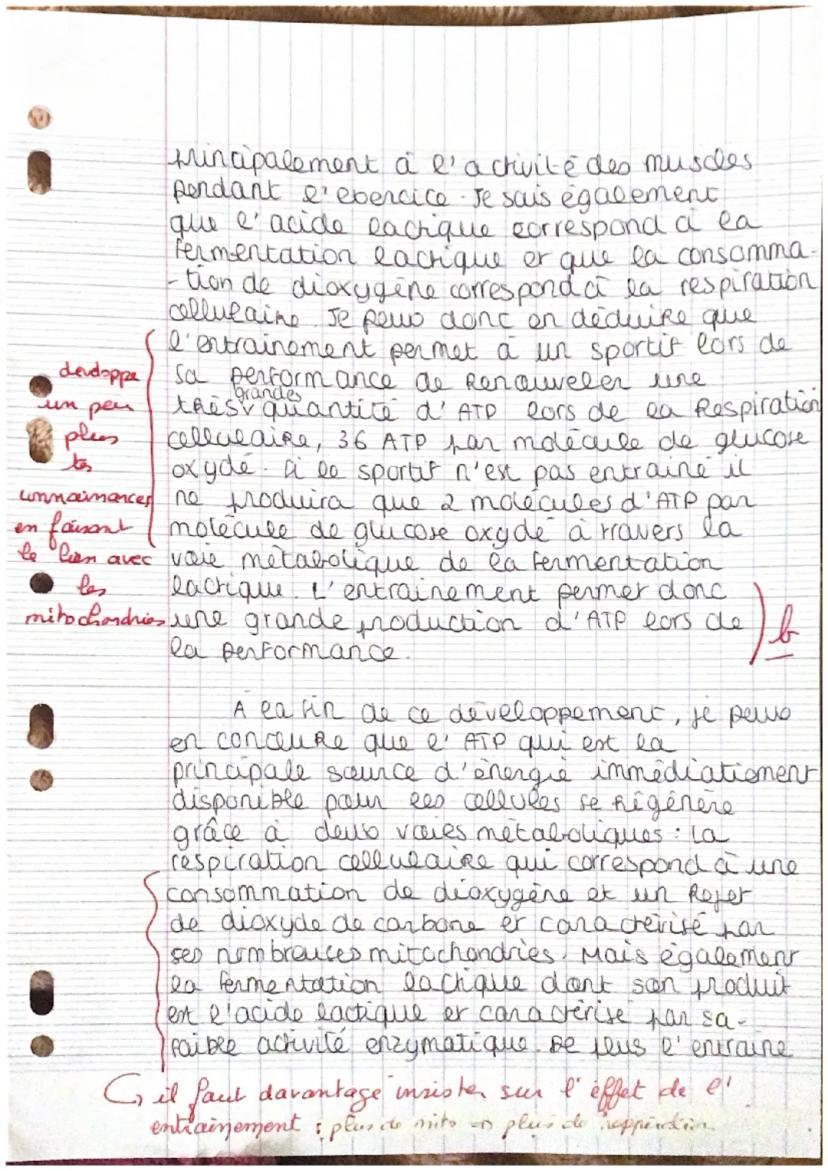 principalement à l'activité des muscles
pendant l'exercice. Je sais également
que l'acide lactique correspond à la
fermentation lactique et que la consomma-
-tion de dioxygène correspond à la respiration
cellulaire. Je peux donc en déduire que
l'entrainement permet à un sportif lors de
sa performance de renouveler une
très grandes quantité d'ATP lors de la Respiration
cellulaire, 36 ATP par molécule de glucose
oxydé. Si le sportif n'est pas entrainé il
ne produira que 2 molécules d'ATP par
molécule de glucose oxydé à travers la
voie métabolique de la fermentation
lactique. L'entrainement permet donc
une grande production d'ATP lors de
la performance.
developpe
un peu
plus
tes
connaissances
en faisant
le lien avec
les
mitochondries
b
A la fin de ce développement, je peux
en conclure que l'ATP qui est la
principale source d'énergie immédiatement
disponible pour les cellules se régénère
grâce à deux voies métaboliques : la
respiration cellulaire qui correspond à une
consommation de dioxygène et un Rejet
de dioxyde de carbone et caractérisé par
ses nombreuses mitochondries. Mais également
la fermentation lactique dont son produit
est l'acide lactique et caractérisé par sa
faible activité enzymatique. De plus l'entraine
il faut davantage insister sur l'effet de l'
entraînement : plus de mito → plus de respiration.